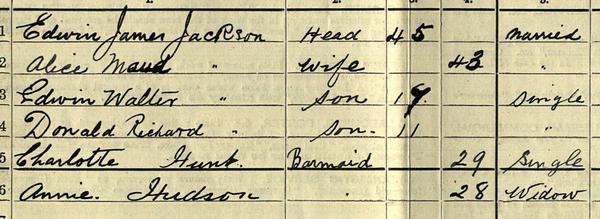 1 Edwin James Jackson Head 45 Married
2 Alice Maud " Wife 43 "
3 Edwin Walter " Son 19 Single
4 Donald Richard " Son 11 "
5 Charlotte Hunt Barmaid 29 Single
6 Annie. Hudson " 28 Widow